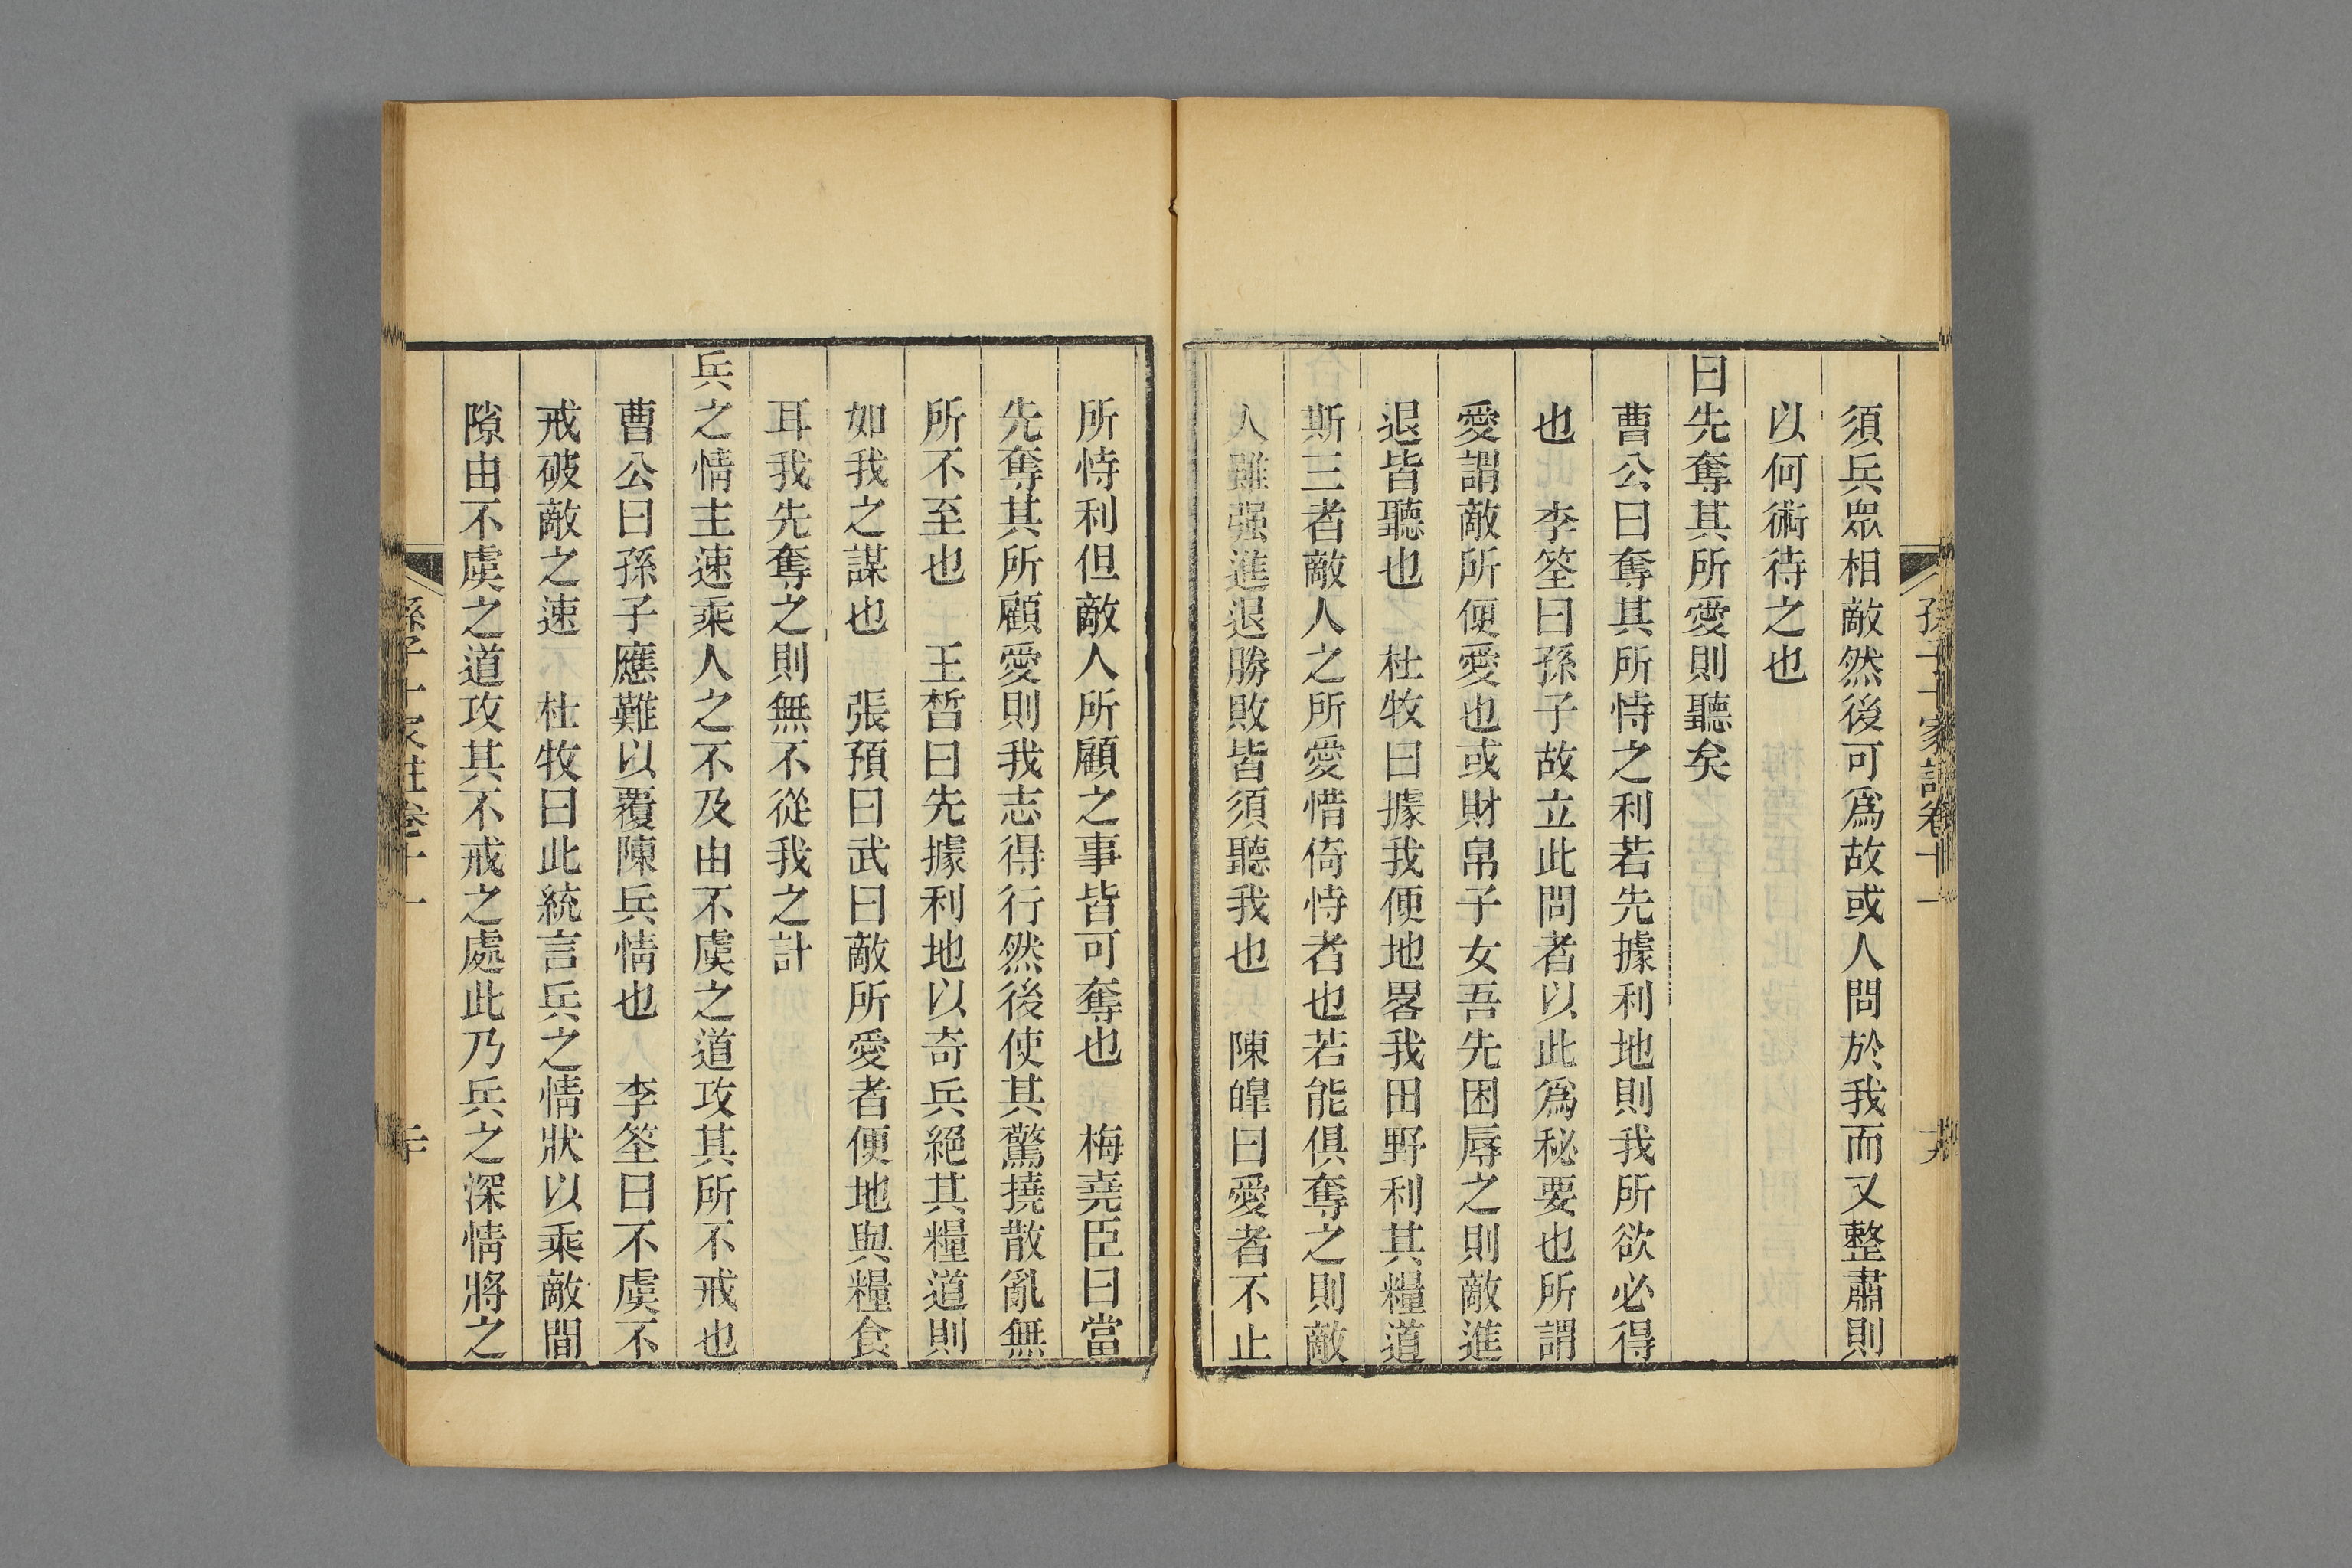 孫子十家註卷十一
十九
須兵眾相敵然後可爲故或人問於我而又整肅則
以何術待之也
曰先奪其所愛則聽矣
曹公曰奪其所恃之利若先據利地則我所欲必得
也　李筌曰孫子故立此問者以此爲秘要也所謂
愛謂敵所便愛也或財帛子女吾先困辱之則敵進
退皆聽也　杜牧曰據我便地畧我田野利其糧道
斯三者敵人之所愛惜倚恃者也若能俱奪之則敵
人雖强進退勝敗皆須聽我也　陳皥曰愛者不止
所恃利但敵人所顧之事皆可奪也　梅堯臣曰當
先奪其所顧愛則我志得行然後使其驚撓散亂無
所不至也　王晳曰先據利地以奇兵絕其糧道則
如我之謀也　張預曰武曰敵所愛者便地與糧食
耳我先奪之則無不從我之計
兵之情主速乘人之不及由不虞之道攻其所不戒也
曹公曰孫子應難以覆陳兵情也　李筌曰不虞不
戒破敵之速　杜牧曰此統言兵之情狀以乘敵間
隙由不虞之道攻其不戒之處此乃兵之深情將之
孫子十家註卷十一
二十